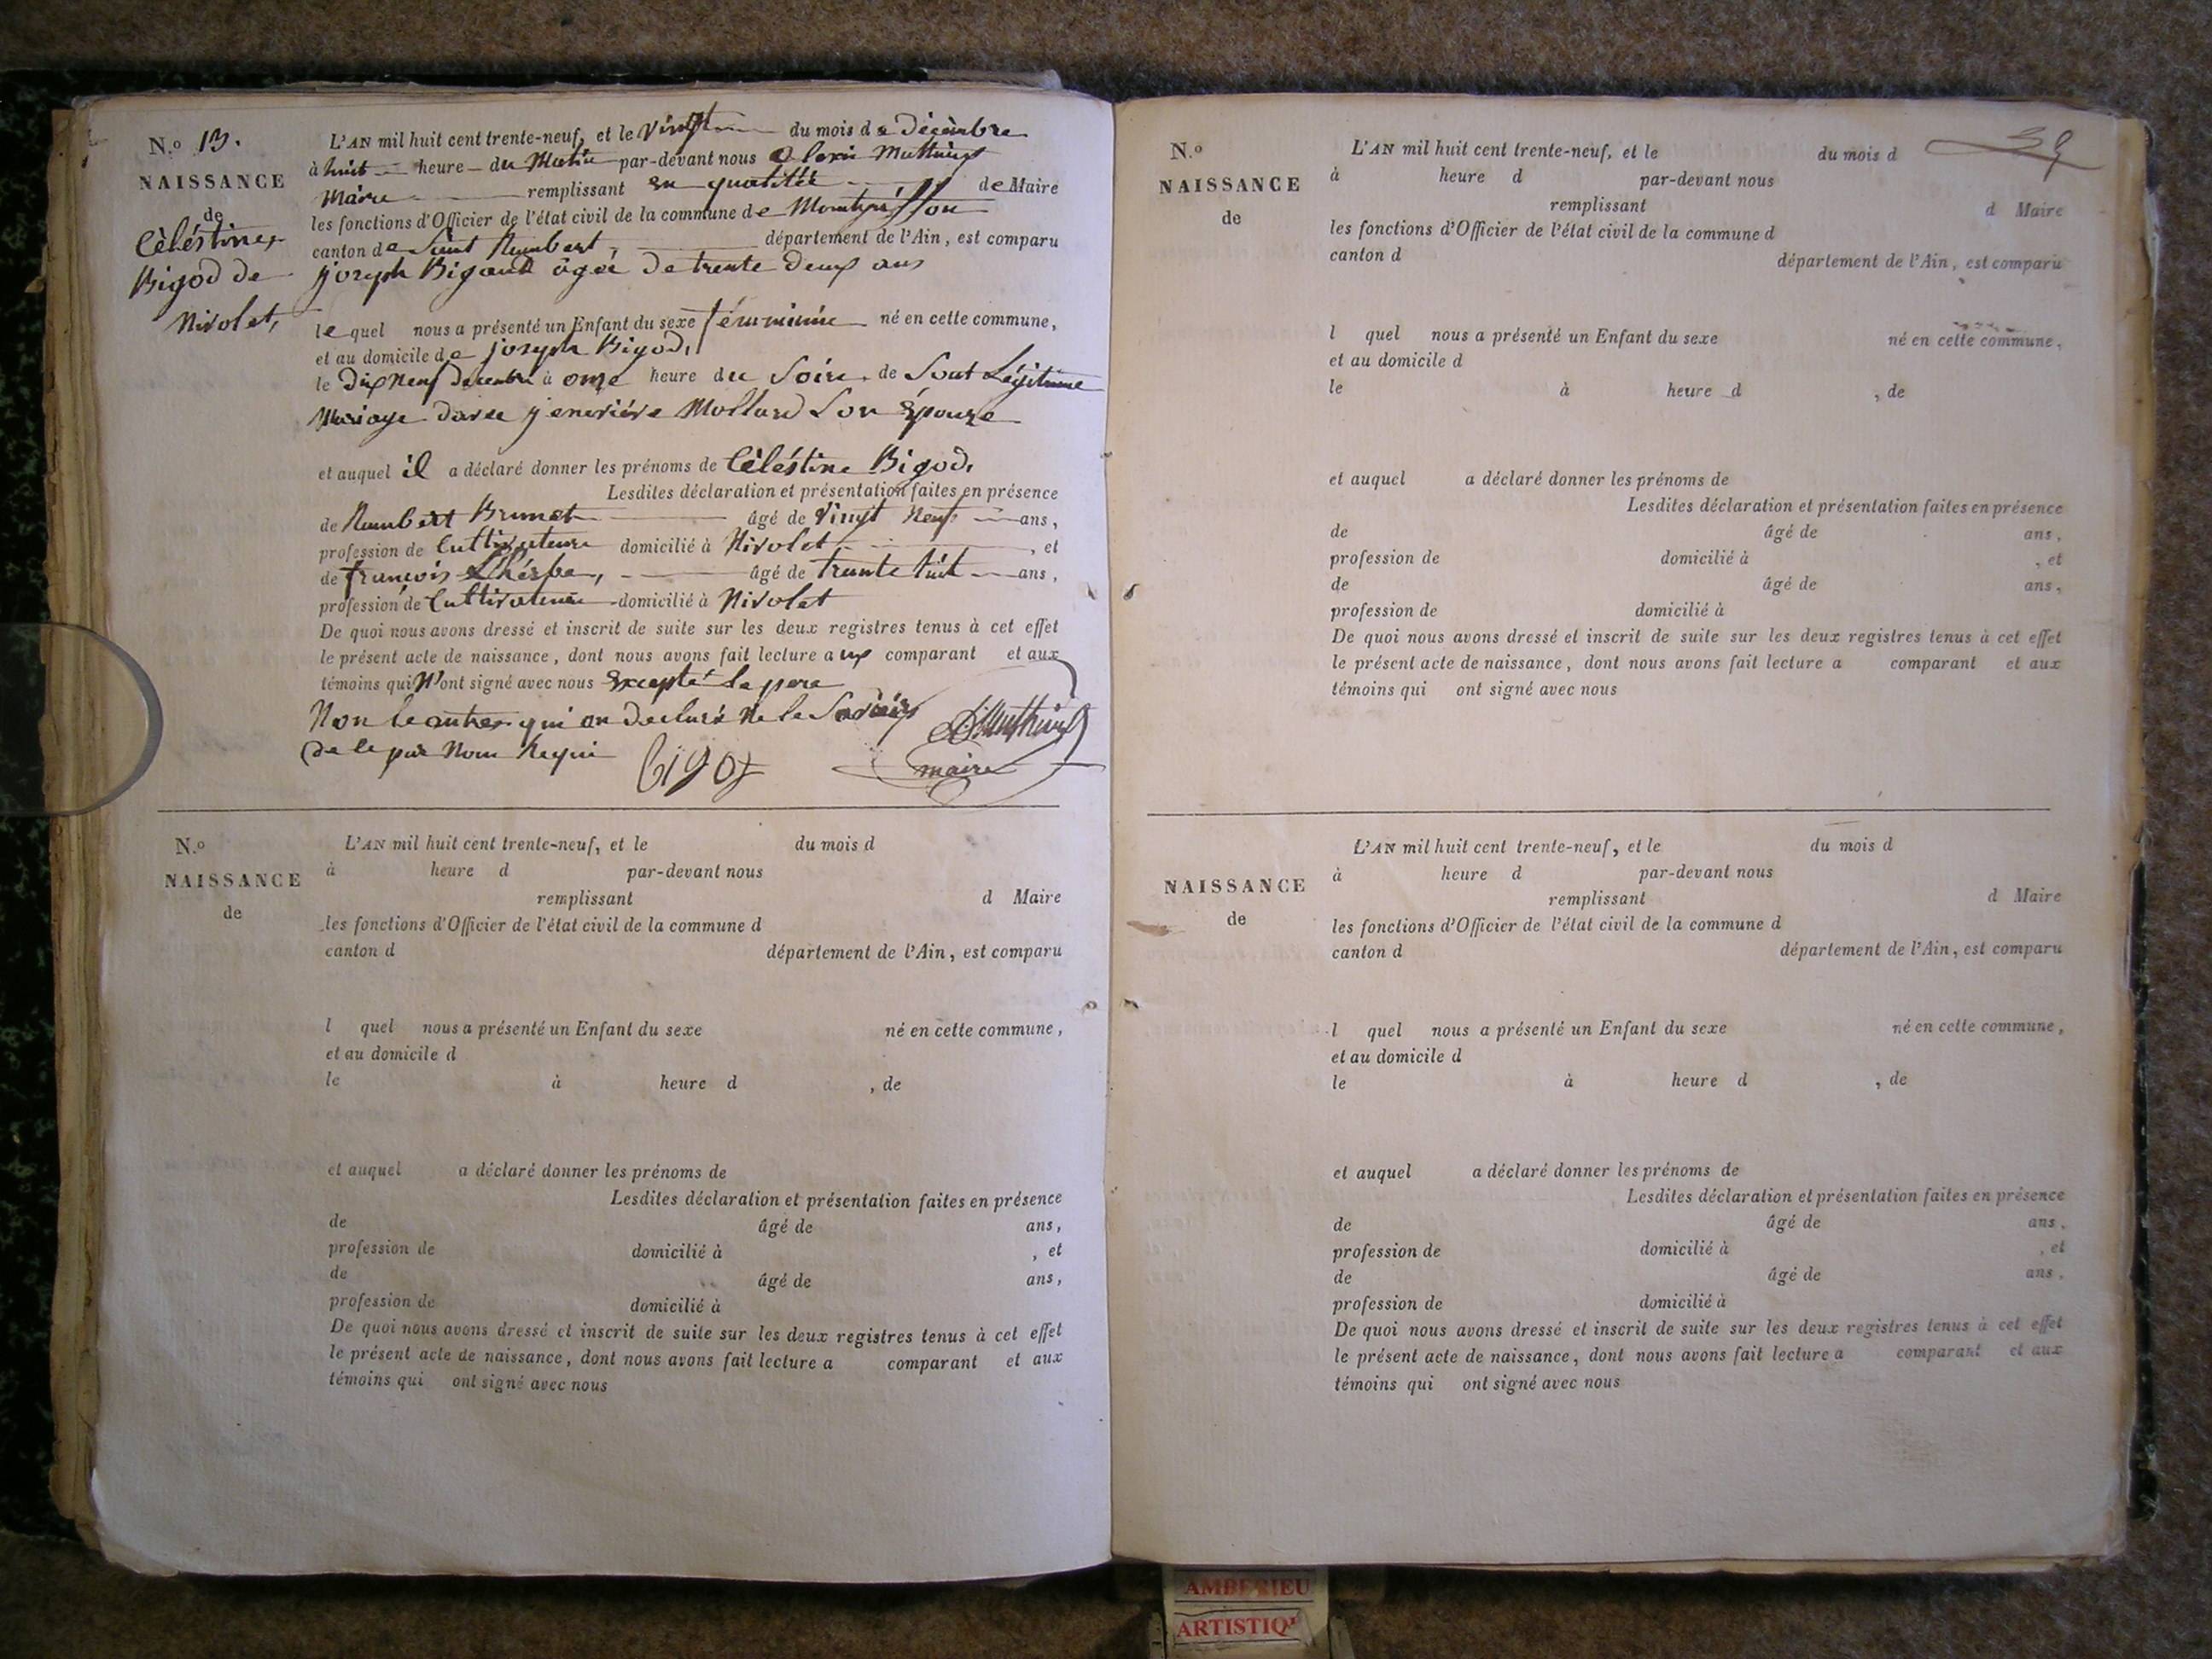 N.º 13.
NAISSANCE
de
Céléstine,
Bigod de
Nivolet,
L'AN mil huit cent trente-neuf, et le vingt du mois de décembre
à huit heure du Matin par-devant nous Alexis Mathieu
Maire remplissant en qualitée de Maire
les fonctions d'Officier de l'état civil de la commune de Montgriffon
canton de Saint Rambert, département de l'Ain, est comparu
joseph Bigaud âgée de trente deux ans
lequel nous a présenté un Enfant du sexe féminine né en cette commune,
et au domicile de joseph Bigod,
le Dix Neuf decembre à onze heure du Soire, de Sont Légitime
Mariage davec jenevièvre Mollard Son Épouze
et auquel il a déclaré donner les prénoms de Céléstine Bigod,
Lesdites déclaration et présentation faites en présence
de Rambert Brunet âgé de vingt Neuf ans,
profession de Cultivateure domicilié à Nivolet, et
de françois Lhéspe, âgé de trante huit ans,
profession de Cultivateure domicilié à Nivolet
De quoi nous avons dressé et inscrit de suite sur les deux registres tenus à cet effet
le présent acte de naissance, dont nous avons fait lecture aux comparant et aux
témoins qui N'ont signé avec nous Excepté le pere
Non le autres qui on déclaré Ne le Savoire
de le par Nous Requi
bigod
maire
N.º
NAISSANCE
de
L'AN mil huit cent trente-neuf, et le du mois d
à heure d par-devant nous
remplissant d Maire
les fonctions d'Officier de l'état civil de la commune d
canton d département de l'Ain, est comparu
l quel nous a présenté un Enfant du sexe né en cette commune,
et au domicile d
le à heure d , de
et auquel a déclaré donner les prénoms de
Lesdites déclaration et présentation faites en présence
de âgé de ans,
profession de domicilié à , et
de âgé de ans,
profession de domicilié à
De quoi nous avons dressé et inscrit de suite sur les deux registres tenus à cet effet
le présent acte de naissance, dont nous avons fait lecture a comparant et aux
témoins qui ont signé avec nous
39
N.º
NAISSANCE
de
L'AN mil huit cent trente-neuf, et le du mois d
à heure d par-devant nous
remplissant d Maire
les fonctions d'Officier de l'état civil de la commune d
canton d département de l'Ain, est comparu
l quel nous a présenté un Enfant du sexe né en cette commune,
et au domicile d
le à heure d , de
et auquel a déclaré donner les prénoms de
Lesdites déclaration et présentation faites en présence
de âgé de ans,
profession de domicilié à , et
de âgé de ans,
profession de domicilié à
De quoi nous avons dressé et inscrit de suite sur les deux registres tenus à cet effet
le présent acte de naissance, dont nous avons fait lecture a comparant et aux
témoins qui ont signé avec nous
NAISSANCE
de
L'AN mil huit cent trente-neuf, et le du mois d
à heure d par-devant nous
remplissant d Maire
les fonctions d'Officier de l'état civil de la commune d
canton d département de l'Ain, est comparu
l quel nous a présenté un Enfant du sexe né en cette commune,
et au domicile d
le à heure d , de
et auquel a déclaré donner les prénoms de
Lesdites déclaration et présentation faites en présence
de âgé de ans,
profession de domicilié à , et
de âgé de ans,
profession de domicilié à
De quoi nous avons dressé et inscrit de suite sur les deux registres tenus à cet effet
le présent acte de naissance, dont nous avons fait lecture a comparant et aux
témoins qui ont signé avec nous
AMBERIEU
ARTISTIQU